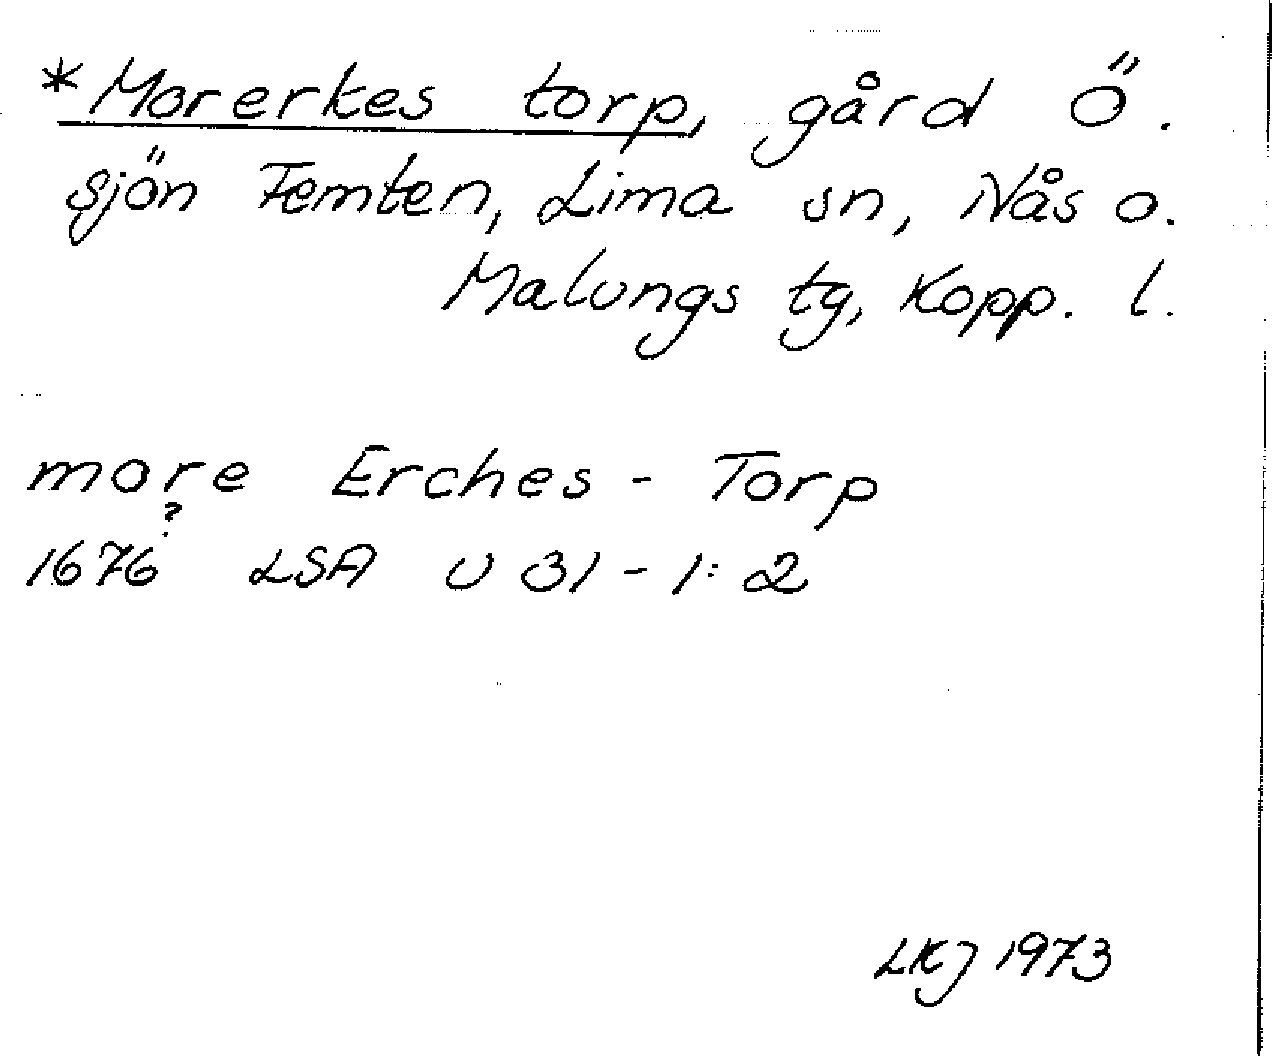 *Morerkes torp, gård Ö.
sjön Femten, Lima sn, Nås o.
Malungs tg, Kopp. l.
more Erches - Torp
?
1676 LSA U 31 - 1:2
LKJ 1973